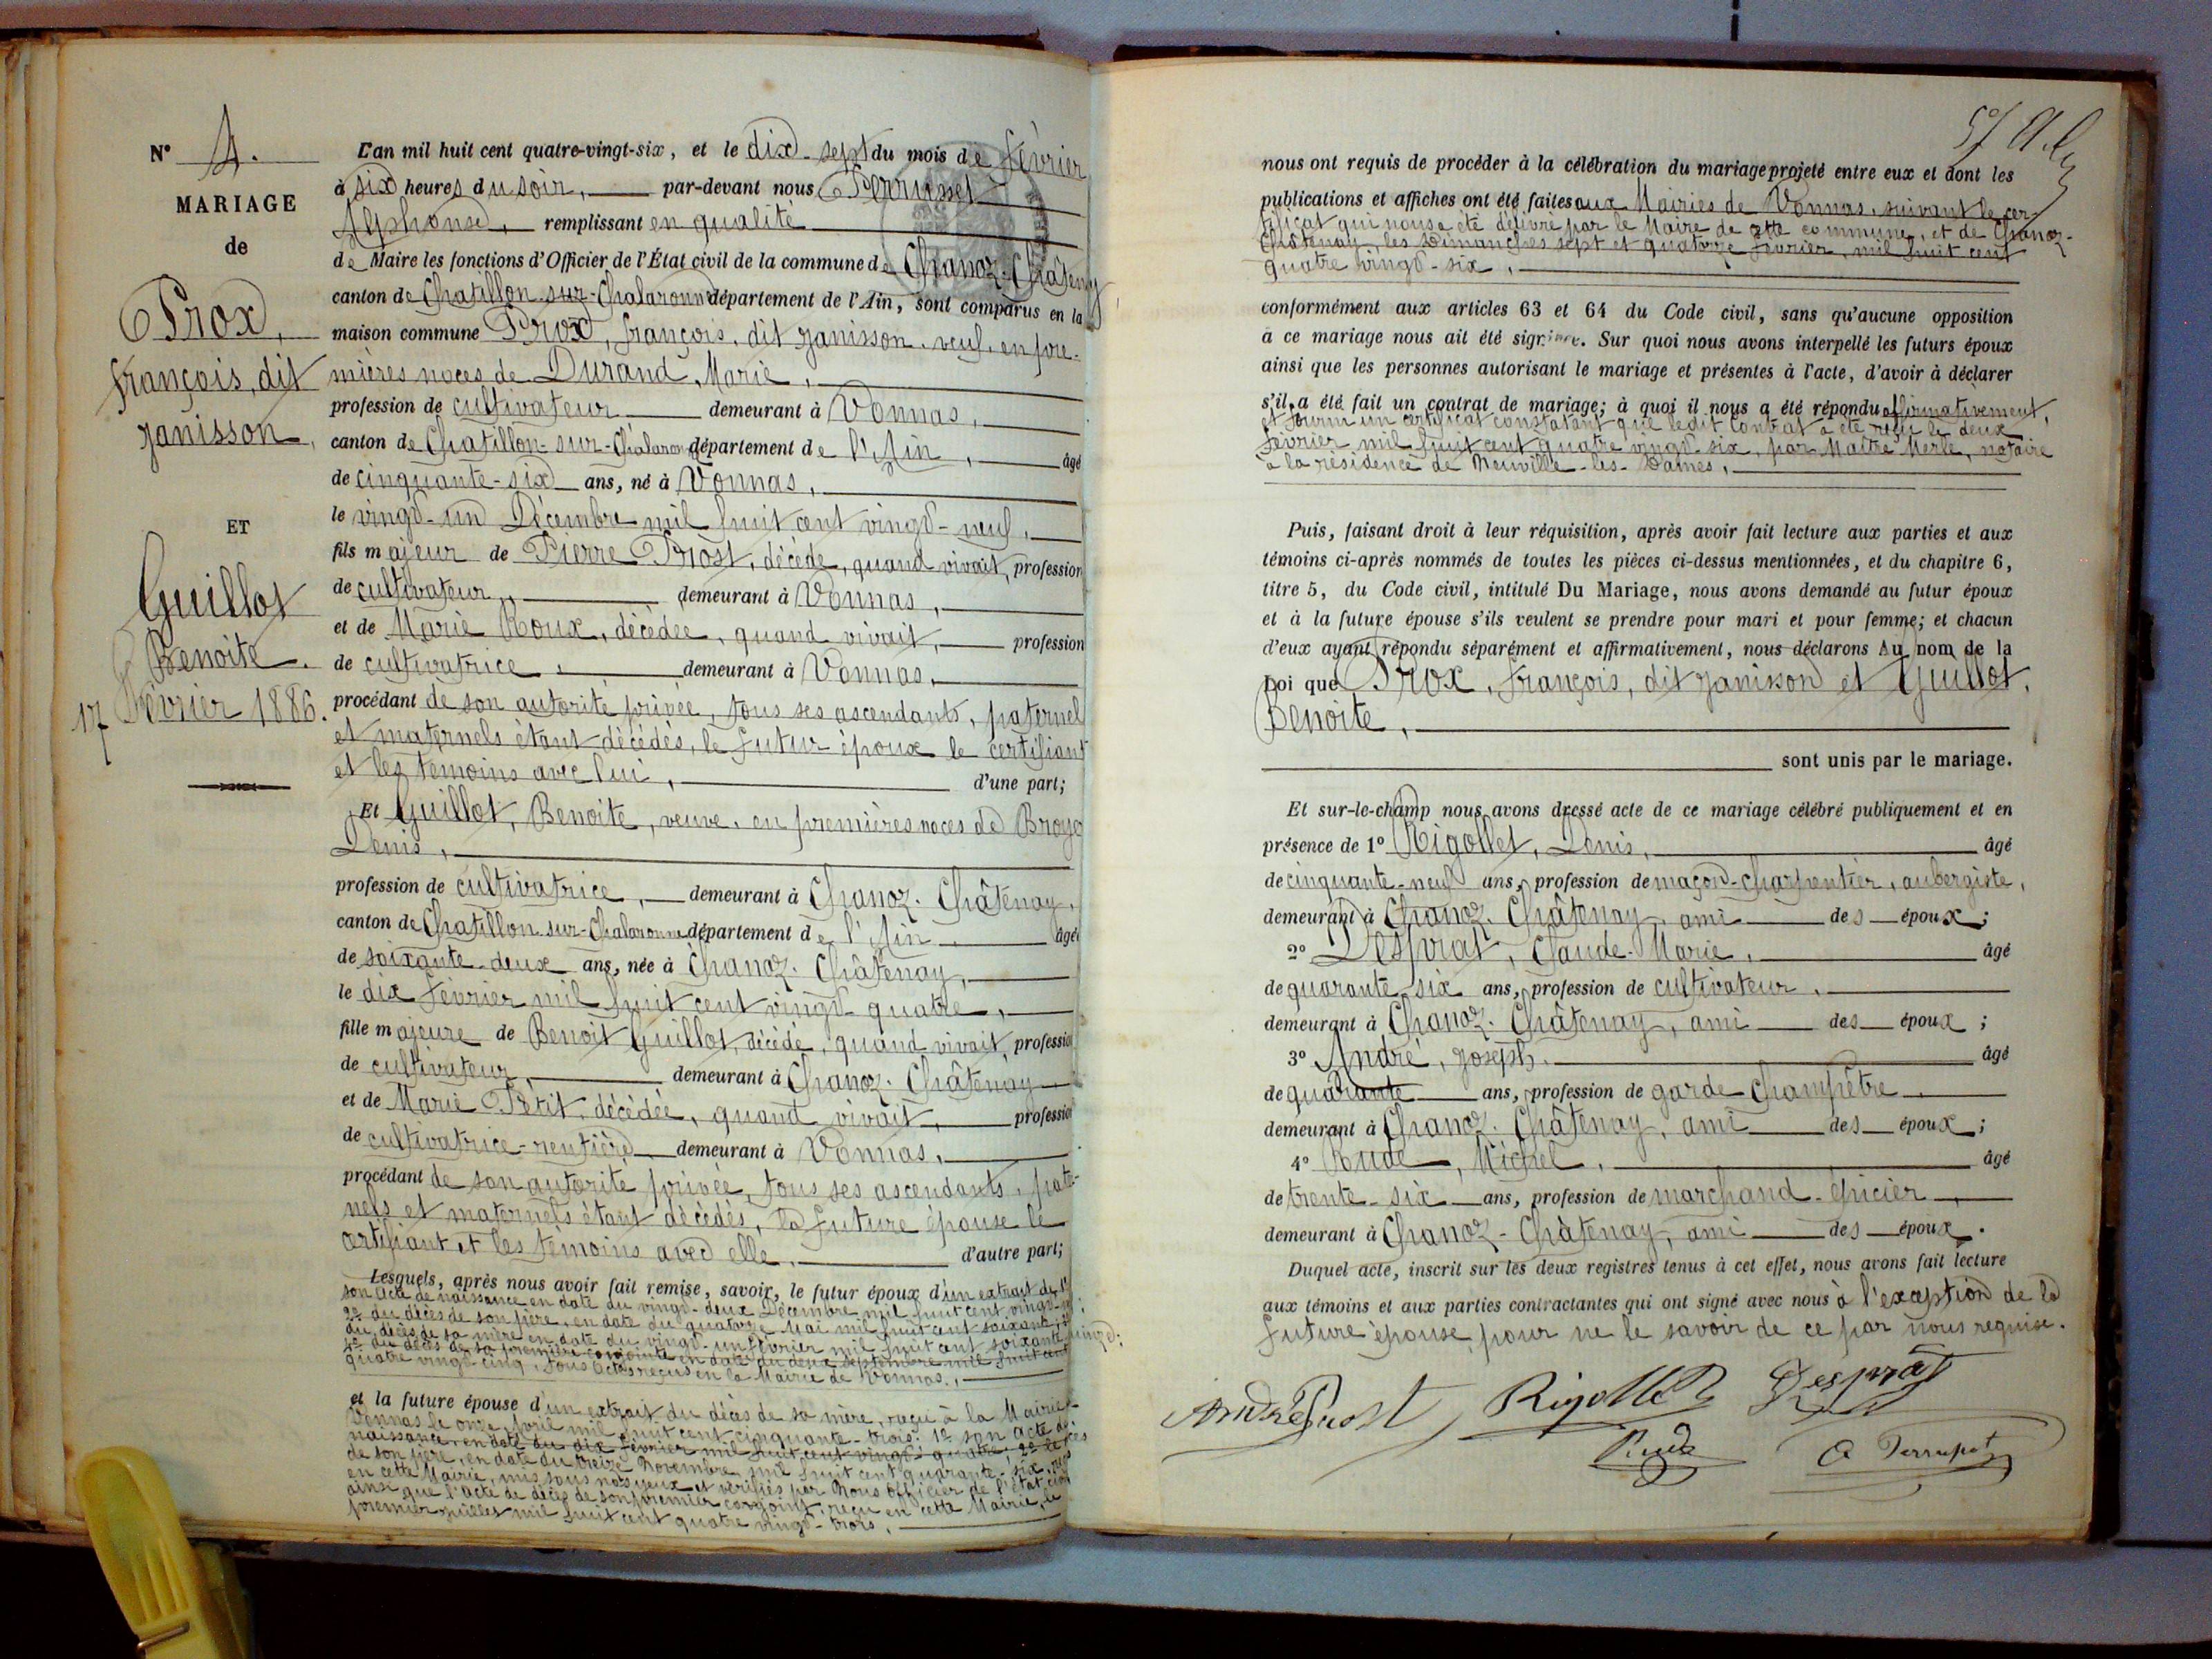 N° 4.
MARIAGE
de
Prox,
françois, dit
Janisson,
ET
Guillot
Benoite.
17 Février 1886.
L'an mil huit cent quatre-vingt-six, et le dix-sept du mois de février
à six heures du soir, par-devant nous Perrusset
Alphonse, remplissant en qualité
de Maire les fonctions d'Officier de l'État civil de la commune de Chanoz-Châtenay
canton de Chatillon-sur-Chalaronne département de l'Ain, sont comparus en la
maison commune Prox, françois, dit Janisson, veuf, en pre-
mières noces de Durand, Marie,
profession de cultivateur demeurant à Vonnas,
canton de Chatillon-sur-Chalaronne département de l'Ain, âgé
de cinquante-six ans, né à Vonnas,
le vingt-un Décembre mil huit cent vingt-neuf,
fils majeur de Pierre Prost, décédé, quand vivait, profession
de cultivateur, demeurant à Vonnas,
et de Marie Roux, décédée, quand vivait, profession
de cultivatrice, demeurant à Vonnas,
procédant de son autorité privée, tous ses ascendants, paternel
et maternels étant décédés, le futur époux le certifiant
et les témoins avec lui, d'une part;
Et Guillot, Benoite, veuve, en premières noces de Broyer
Denis,
profession de cultivatrice, demeurant à Chanoz-Châtenay,
canton de Chatillon-sur-Chalaronne département de l'Ain, âgée
de soixante-deux ans, née à Chanoz-Châtenay,
le dix février mil huit cent vingt-quatre,
fille majeure de Benoit Guillot, décédé, quand vivait, profession
de cultivateur, demeurant à Chanoz-Châtenay
et de Marie Petit, décédée, quand vivait, profession
de cultivatrice-rentière demeurant à Vonnas,
procédant de son autorité privée, tous ses ascendants, pater-
nels et maternels étant décédés, la future épouse le
certifiant et les témoins avec elle, d'autre part;
Lesquels, après nous avoir fait remise, savoir, le futur époux d'un extrait du 1°
son acte de naissance en date du vingt-deux Décembre mil huit cent vingt-neuf;
2° du décès de son père, en date du quatorze Mai mil huit cent soixante,
du décès de sa mère en date du vingt-un février mil huit cent soixante
4° du décès de sa première conjointe en date du deux septembre mil huit cent
quatre vingt-cinq, tous actes reçus en la Mairie de Vonnas,
et la future épouse d'un extrait du décès de sa mère, reçu à la Mairie
Vonnas le onze Avril mil huit cent cinquante-trois: 1° son acte de
naissance, en date du dix février mil huit cent vingt-quatre; 2° le décès
de son père, en date du treize Novembre mil huit cent quarante-six,
en cette Mairie, mis sous nos yeux et vérifiés par Nous officier de l'état civil
ainsi que l'acte de décès de son premier conjoint, reçu en cette Mairie, le
premier juillet mil huit cent quatre vingt-trois,
nous ont requis de procéder à la célébration du mariage projeté entre eux et dont les
publications et affiches ont été faites aux Mairies de Vonnas, suivant le cer-
tificat qui nous a été délivré par le Maire de cette commune, et de Chanoz-
Châtenay, les Dimanches sept et quatorze février, mil huit cent
quatre vingt-six,
conformément aux articles 63 et 64 du Code civil, sans qu'aucune opposition
à ce mariage nous ait été signifiée. Sur quoi nous avons interpellé les futurs époux
ainsi que les personnes autorisant le mariage et présentes à l'acte, d'avoir à déclarer
s'il a été fait un contrat de mariage; à quoi il nous a été répondu affirmativement,
et fourni un certificat constatant que ledit contrat a été reçu le deux
février mil huit cent quatre vingt-six, par Maître Merle, notaire
à la résidence de Neuville-les-Dames,
Puis, faisant droit à leur réquisition, après avoir fait lecture aux parties et aux
témoins ci-après nommés de toutes les pièces ci-dessus mentionnées, et du chapitre 6,
titre 5, du Code civil, intitulé Du Mariage, nous avons demandé au futur époux
et à la future épouse s'ils veulent se prendre pour mari et pour femme; et chacun
d'eux ayant répondu séparément et affirmativement, nous déclarons Au nom de la
Loi que Prox, françois, dit Janisson et Guillot,
Benoite,
sont unis par le mariage.
Et sur-le-champ nous avons dressé acte de ce mariage célébré publiquement et en
présence de 1° Rigollet, Denis, âgé
de cinquante-neuf ans, profession de maçon-charpentier, aubergiste,
demeurant à Chanoz-Châtenay, ami des époux;
2° Desprat, Claude-Marie, âgé
de quarante-six ans, profession de cultivateur,
demeurant à Chanoz-Châtenay, ami des époux;
3° André, Joseph, âgé
de quarante ans, profession de garde champêtre,
demeurant à Chanoz-Châtenay, ami des époux;
4° Rude, Michel, âgé
de trente-six ans, profession de marchand-épicier,
demeurant à Chanoz-Châtenay, ami des époux.
Duquel acte, inscrit sur les deux registres tenus à cet effet, nous avons fait lecture
aux témoins et aux parties contractantes qui ont signé avec nous à l'exception de la
future épouse pour ne le savoir de ce par nous requise.
André Prost Rigollet Desprat
Rude A Perrusset